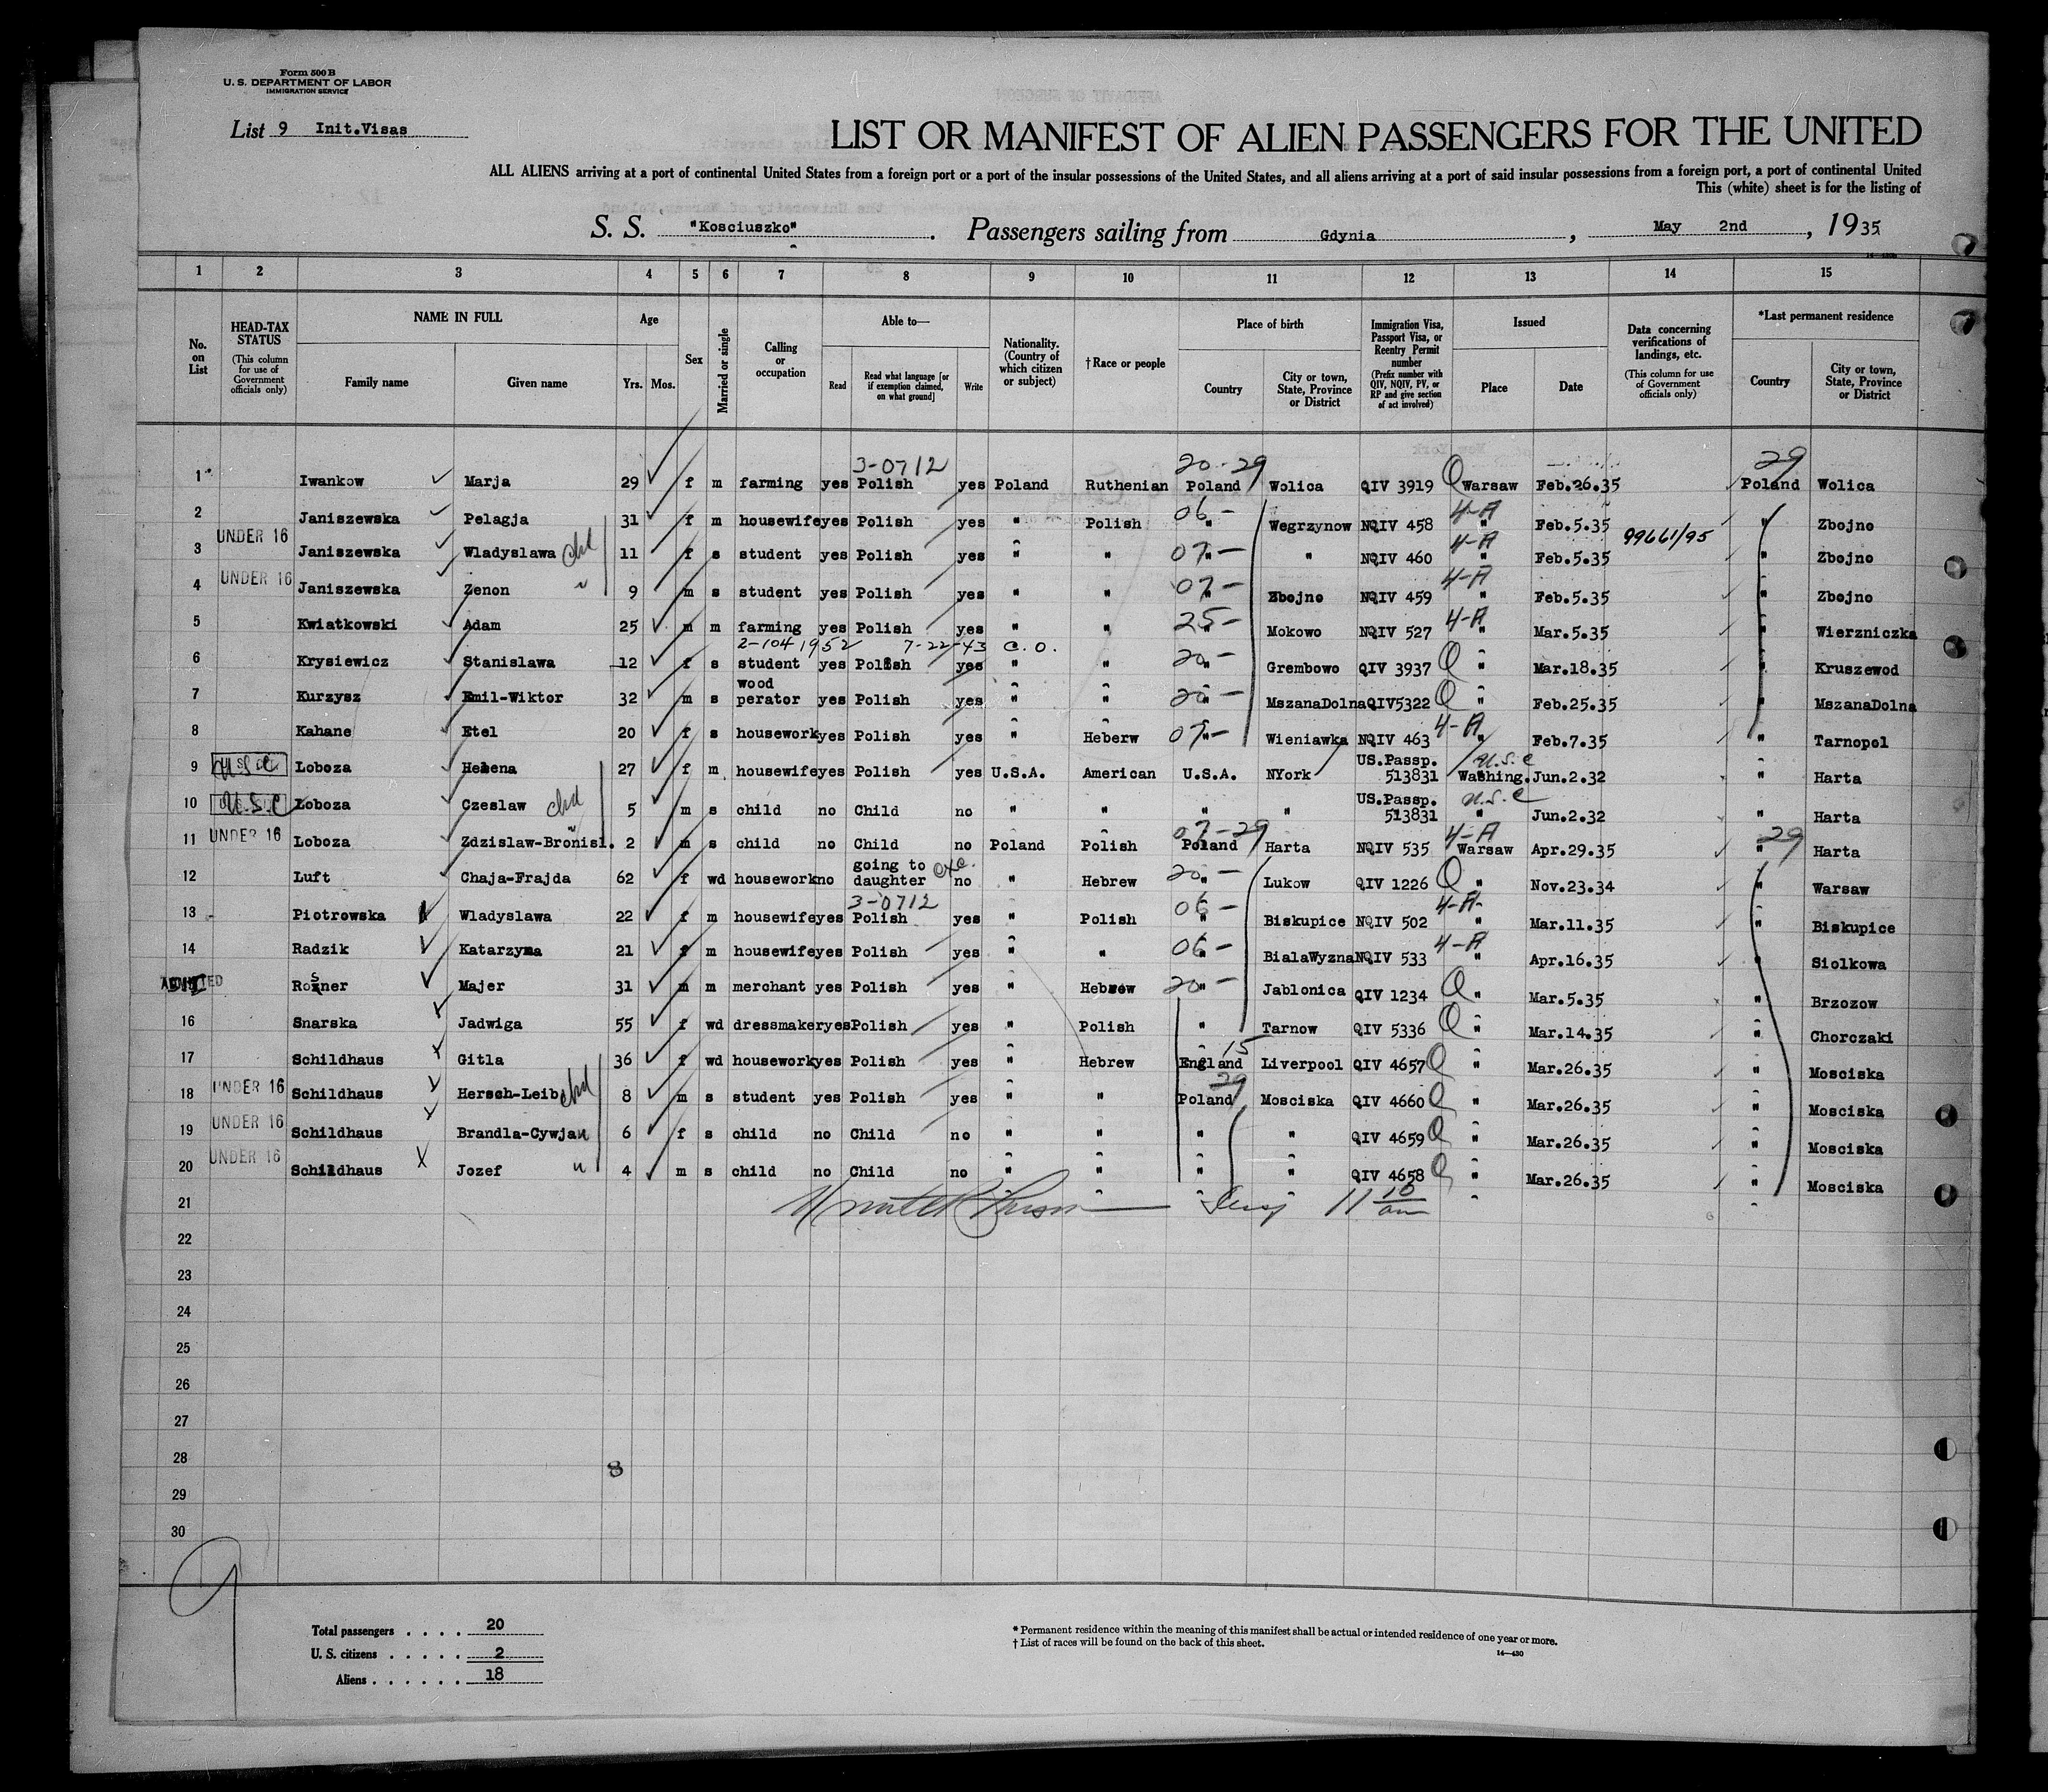 Form 500 B
U. S. DEPARTMENT OF LABOR
IMMIGRATION SERVICE
List 9 Init.Visas
LIST OR MANIFEST OF ALIEN PASSENGERS FOR THE UNITED
ALL ALIENS arriving at a port of continental United States from a foreign port or a port of the insular possessions of the United States, and all aliens arriving at a port of said insular possessions from a foreign port, a port of continental United
This (white) sheet is for the listing of
S. S. "Kosciuszko". Passengers sailing from Gdynia, May 2nd, 1935
1 2 3 4 5 6 7 8 9 10 11 12 13 14 15
No. on List
HEAD-TAX STATUS (This column for use of Government officials only)
NAME IN FULL
Family name Given name
Age
Yrs. Mos.
Sex
Married or single
Calling or occupation
Able to—
Read Read what language [or if exemption claimed, on what ground] Write
Nationality. (Country of which citizen or subject)
† Race or people
Place of birth
Country City or town, State, Province or District
Immigration Visa, Passport Visa, or Reentry Permit number (Prefix number with QIV, NQIV, PV, or RP and give section of act involved)
Issued
Place Date
Data concerning verifications of landings, etc. (This column for use of Government officials only)
*Last permanent residence
Country City or town, State, Province or District
3-0712 20-29 29
1 Iwankow Marja 29 f m farming yes Polish yes Poland Ruthenian Poland Wolica QIV 3919 Q Warsaw Feb.26.35 Poland Wolica
2 Janiszewska Pelagja 31 f m housewife yes Polish yes " Polish 06- " Wegrzynow NQIV 458 4-A " Feb.5.35 " Zbojno
UNDER 16 99661/95
3 Janiszewska Wladyslawa chd 11 f s student yes Polish yes " " 07- " " NQIV 460 4-A " Feb.5.35 " Zbojno
UNDER 16
4 Janiszewska Zenon " 9 m s student yes Polish yes " " 07- " Zbojno NQIV 459 4-A " Feb.5.35 " Zbojno
5 Kwiatkowski Adam 25 m m farming yes Polish yes " " 25- " Mokowo NQIV 527 4-A " Mar.5.35 " Wierzniczka
2-1041952 7-22-43 C.O.
6 Krysiewicz Stanislawa 12 f s student yes Polish yes " " 20- " Grembowo QIV 3937 Q " Mar.18.35 " Kruszewod
wood
7 Kurzysz Emil-Wiktor 32 m s perator yes Polish yes " " 20- " MszanaDolna QIV5322 Q " Feb.25.35 " MszanaDolna
8 Kahane Etel 20 f s housework yes Polish yes " Heberw 07- " Wieniawka NQIV 463 4-A " Feb.7.35 " Tarnopol
9 U.S.C. Loboza Helena 27 f m housewife yes Polish yes U.S.A. American U.S.A. NYork US.Passp. 513831 U.S.C Washing. Jun.2.32 " Harta
10 U.S.C Loboza Czeslaw chd 5 m s child no Child no " " " " US.Passp. 513831 U.S.C " Jun.2.32 " Harta
UNDER 16 07-29 29
11 Loboza Zdzislaw-Bronisl. " 2 m s child no Child no Poland Polish Poland Harta NQIV 535 4-A Warsaw Apr.29.35 " Harta
12 Luft Chaja-Frajda 62 f wd housework no going to daughter exc. no " Hebrew 20- Lukow QIV 1226 Q " Nov.23.34 " Warsaw
3-0712
13 Piotrowska Wladyslawa 22 f m housewife yes Polish yes " Polish 06- " Biskupice NQIV 502 4-A " Mar.11.35 " Biskupice
14 Radzik Katarzyna 21 f m housewife yes Polish yes " " 06- " BialaWyzna NQIV 533 4-A " Apr.16.35 " Siolkowa
ADMITTED Rosner Majer 31 m m merchant yes Polish yes " Hebrew 20- " Jablonica QIV 1234 Q " Mar.5.35 " Brzozow
16 Snarska Jadwiga 55 f wd dressmaker yes Polish yes " Polish " Tarnow QIV 5336 Q " Mar.14.35 " Chorczaki
17 Schildhaus Gitla 36 f wd housework yes Polish yes " Hebrew 15 England Liverpool QIV 4657 Q " Mar.26.35 " Mosciska
18 UNDER 16 Schildhaus Hersch-Leib chd 8 m s student yes Polish yes " " 29 Poland Mosciska QIV 4660 Q " Mar.26.35 " Mosciska
19 UNDER 16 Schildhaus Brandla-Cywja " 6 f s child no Child no " " " " QIV 4659 Q " Mar.26.35 " Mosciska
20 UNDER 16 Schildhaus Jozef " 4 m s child no Child no " " " " QIV 4658 Q " Mar.26.35 " Mosciska
21 11 10 am
22
23
24
25
26
27
28 8
29
30
9
Total passengers . . . . 20
U. S. citizens . . . . . 2
Aliens . . . . . . 18
* Permanent residence within the meaning of this manifest shall be actual or intended residence of one year or more.
† List of races will be found on the back of this sheet.
14—430